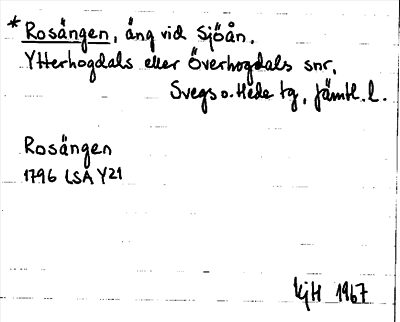 * Rosängen, äng vid Sjöån.
Ytterhogdals eller Överhogdals snr.
Svegs o. Hede tg, Jämtl. l.
Rosängen
1796 LSA Y21
KjH 1967